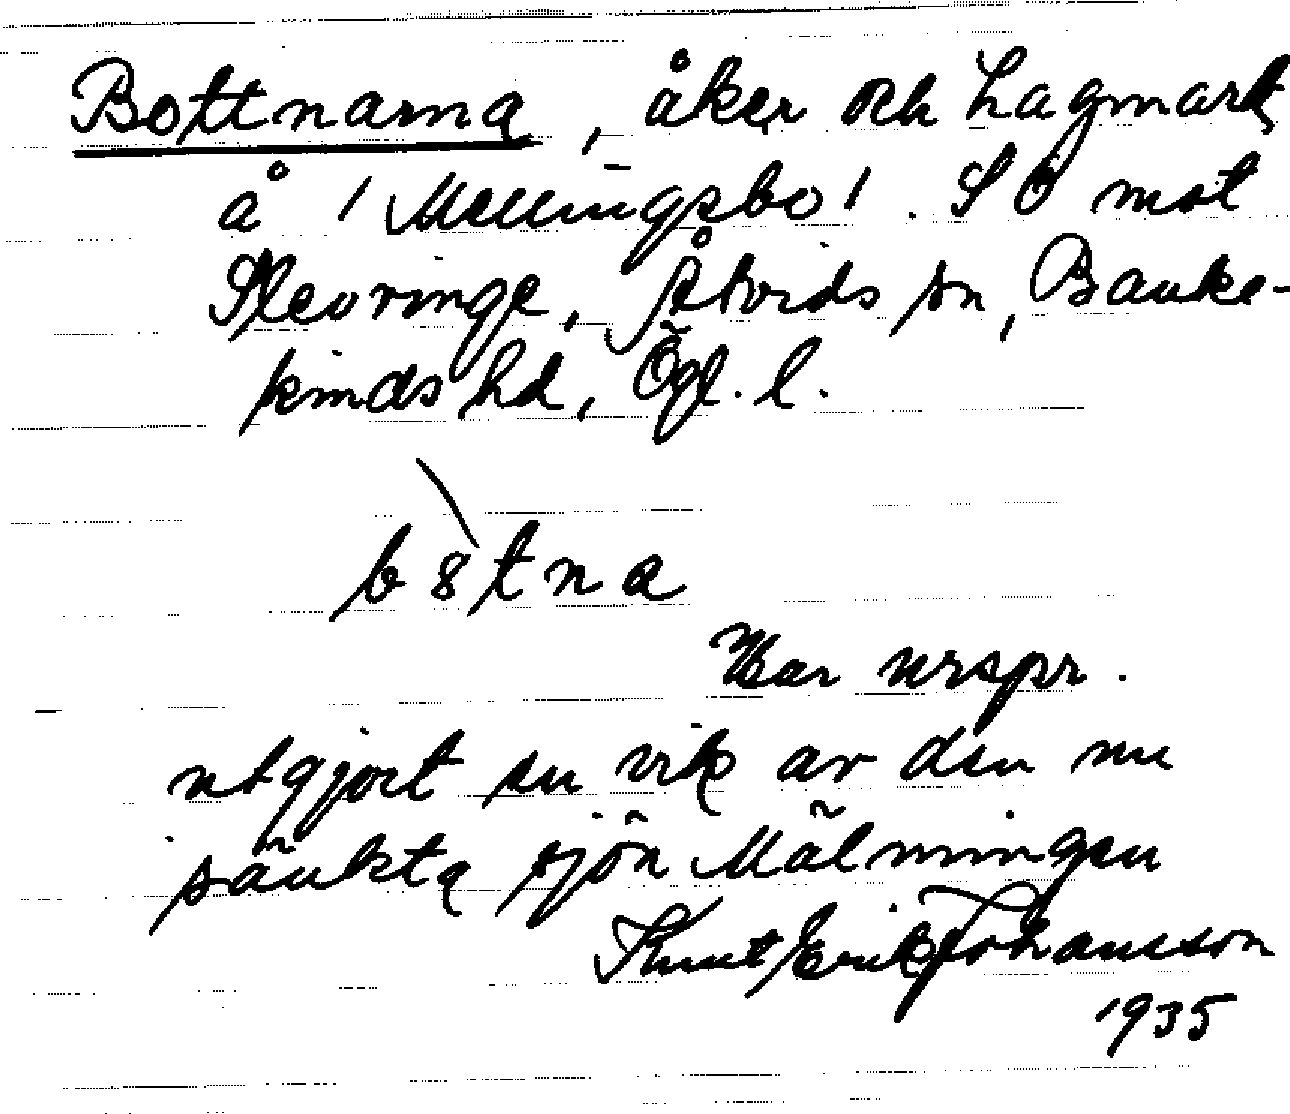 Bottnarna, åker och hagmark
å / Mellingsbo /. SÖ mot
Slevringe, Åtvids sn, Banke-
kinds hd, Ögl. l.
b8tna
Har urspr.
utgjort en vik av den nu
sänkta sjön Mälmingen
Knut Erik Johansson
1935